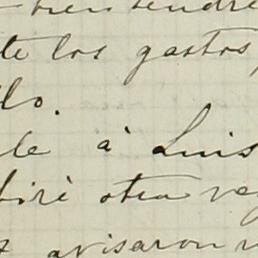 bien tendre
te los gastos,
lo.
le à Luis
birè otra vez
avisaron